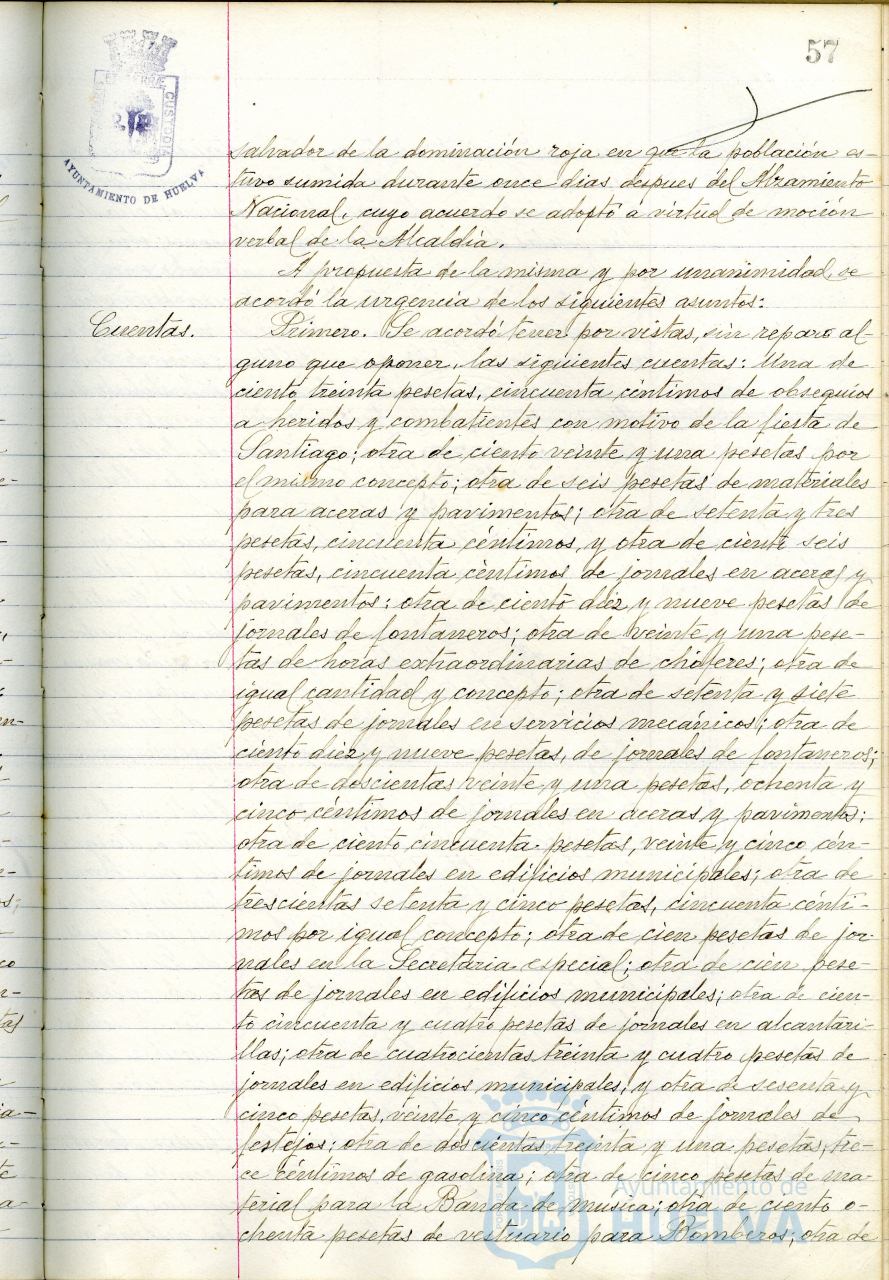 57
AYUNTAMIENTO DE HUELVA
CUSTODIA
salvador de la dominación roja en que la población es-
tuvo sumida durante once dias despues del Alzamiento
Nacional, cuyo acuerdo se adoptó a virtud de moción
verbal de la Alcaldía.
A propuesta de la misma y por unanimidad, se
acordó la urgencia de los siguientes asuntos:
Cuentas.
Primero. Se acordó tener por vistas, sin reparo al-
guno que oponer, las siguientes cuentas: Una de
ciento treinta pesetas, cincuenta céntimos de obsequios
a heridos y combatientes con motivo de la fiesta de
Santiago; otra de ciento veinte y una pesetas por
el mismo concepto; otra de seis pesetas de materiales
para aceras y pavimentos; otra de setenta y tres
pesetas, cincuenta céntimos, y otra de ciento seis
pesetas, cincuenta céntimos de jornales en aceras y
pavimentos: otra de ciento diez y nueve pesetas de
jornales de fontaneros; otra de veinte y una pese-
tas de horas extraordinarias de chóferes; otra de
igual cantidad y concepto; otra de setenta y siete
pesetas de jornales en servicios mecánicos; otra de
ciento diez y nueve pesetas, de jornales de fontaneros;
otra de doscientas veinte y una pesetas, ochenta y
cinco céntimos de jornales en aceras y pavimentos;
otra de ciento cincuenta pesetas, veinte y cinco cén-
timos de jornales en edificios municipales; otra de
trescientas setenta y cinco pesetas, cincuenta cénti-
mos por igual concepto; otra de cien pesetas de jor-
nales en la Secretaria especial; otra de cien pese-
tas de jornales en edificios municipales; otra de cien-
to cincuenta y cuatro pesetas de jornales en alcantari-
llas; otra de cuatrocientas treinta y cuatro pesetas de
jornales en edificios municipales, y otra de sesenta y
cinco pesetas, veinte y cinco céntimos de jornales de
festejos; otra de doscientas treinta y una pesetas, tre-
ce céntimos de gasolina; otra de cinco pesetas de ma-
terial para la Banda de música; otra de ciento o-
chenta pesetas de vestuario para Bomberos; otra de
Ayuntamiento de
HUELVA